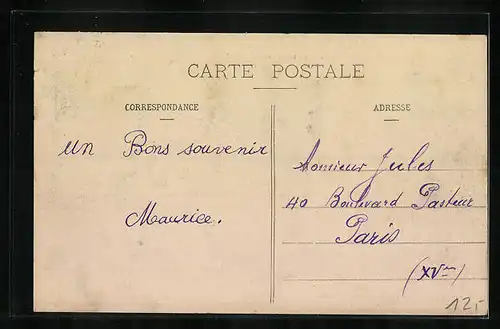 CARTE POSTALE
CORRESPONDANCE
ADRESSE
un Bons souvenir
Maurice.
Monsieur Jules
40 Boulevard Pasteur
Paris
(XVme)
12,-